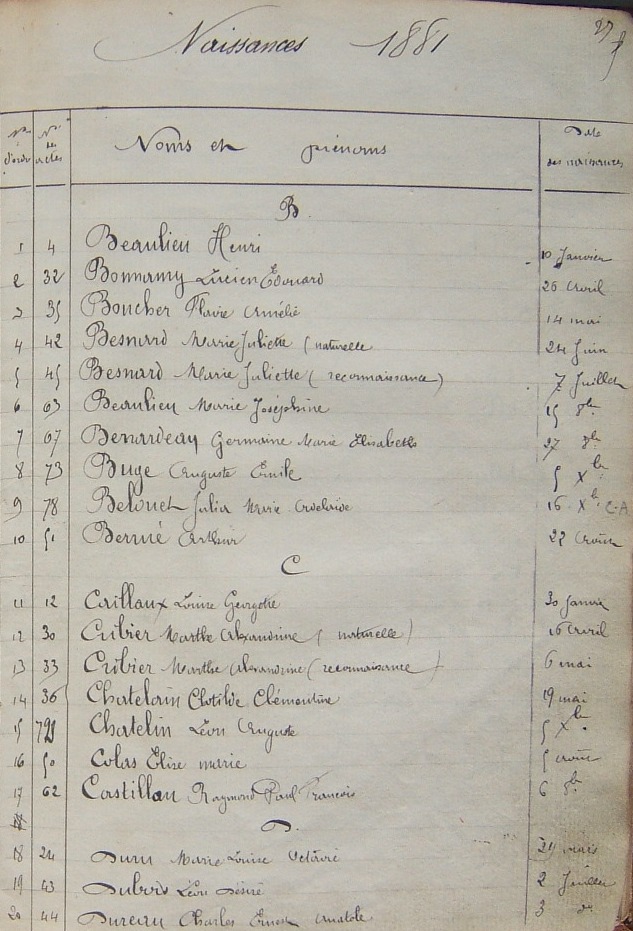 27
Naissances 1881
Nos d'ordre Nos des actes Noms et prénoms Date des naissances
B.
1 4 Beaulieu Henri 10 Janvier
2 32 Bonnamy Lucien Édouard 26 Avril
3 35 Boucher Flavie Amélie 14 mai
4 42 Besnard Marie Juliette (naturelle 24 Juin
5 45 Besnard Marie Juliette (reconnaissance) 7 Juillet
6 63 Beaulieu Marie Joséphine 15 8bre
7 67 Benardeau Germaine Marie Elisabeth 27 8bre
8 73 Buge Auguste Emile 5 Xbre
9 78 Belouet Julia Marie Adelaide 16 Xbre C.A
10 51 Bernié Arthur 22 Août
C
11 12 Caillaux Louise Georgette 30 Janvier
12 30 Cribier Marthe Alexandrine (naturelle) 16 Avril
13 33 Cribier Marthe Alexandrine (reconnaissance) 6 mai
14 36 Chatelain Clotilde Clémentine 19 mai
15 72 Chatelin Léon Auguste 5 Xbre
16 50 Colas Elise marie 5 août
17 62 Castillan Raymond Paul François 6 8bre
D.
18 24 Duru Marie Louise Octavie 29 mars
19 43 Dubois Léon Désiré 2 Juillet
20 44 Dureau Charles Ernest Anatole 3 do